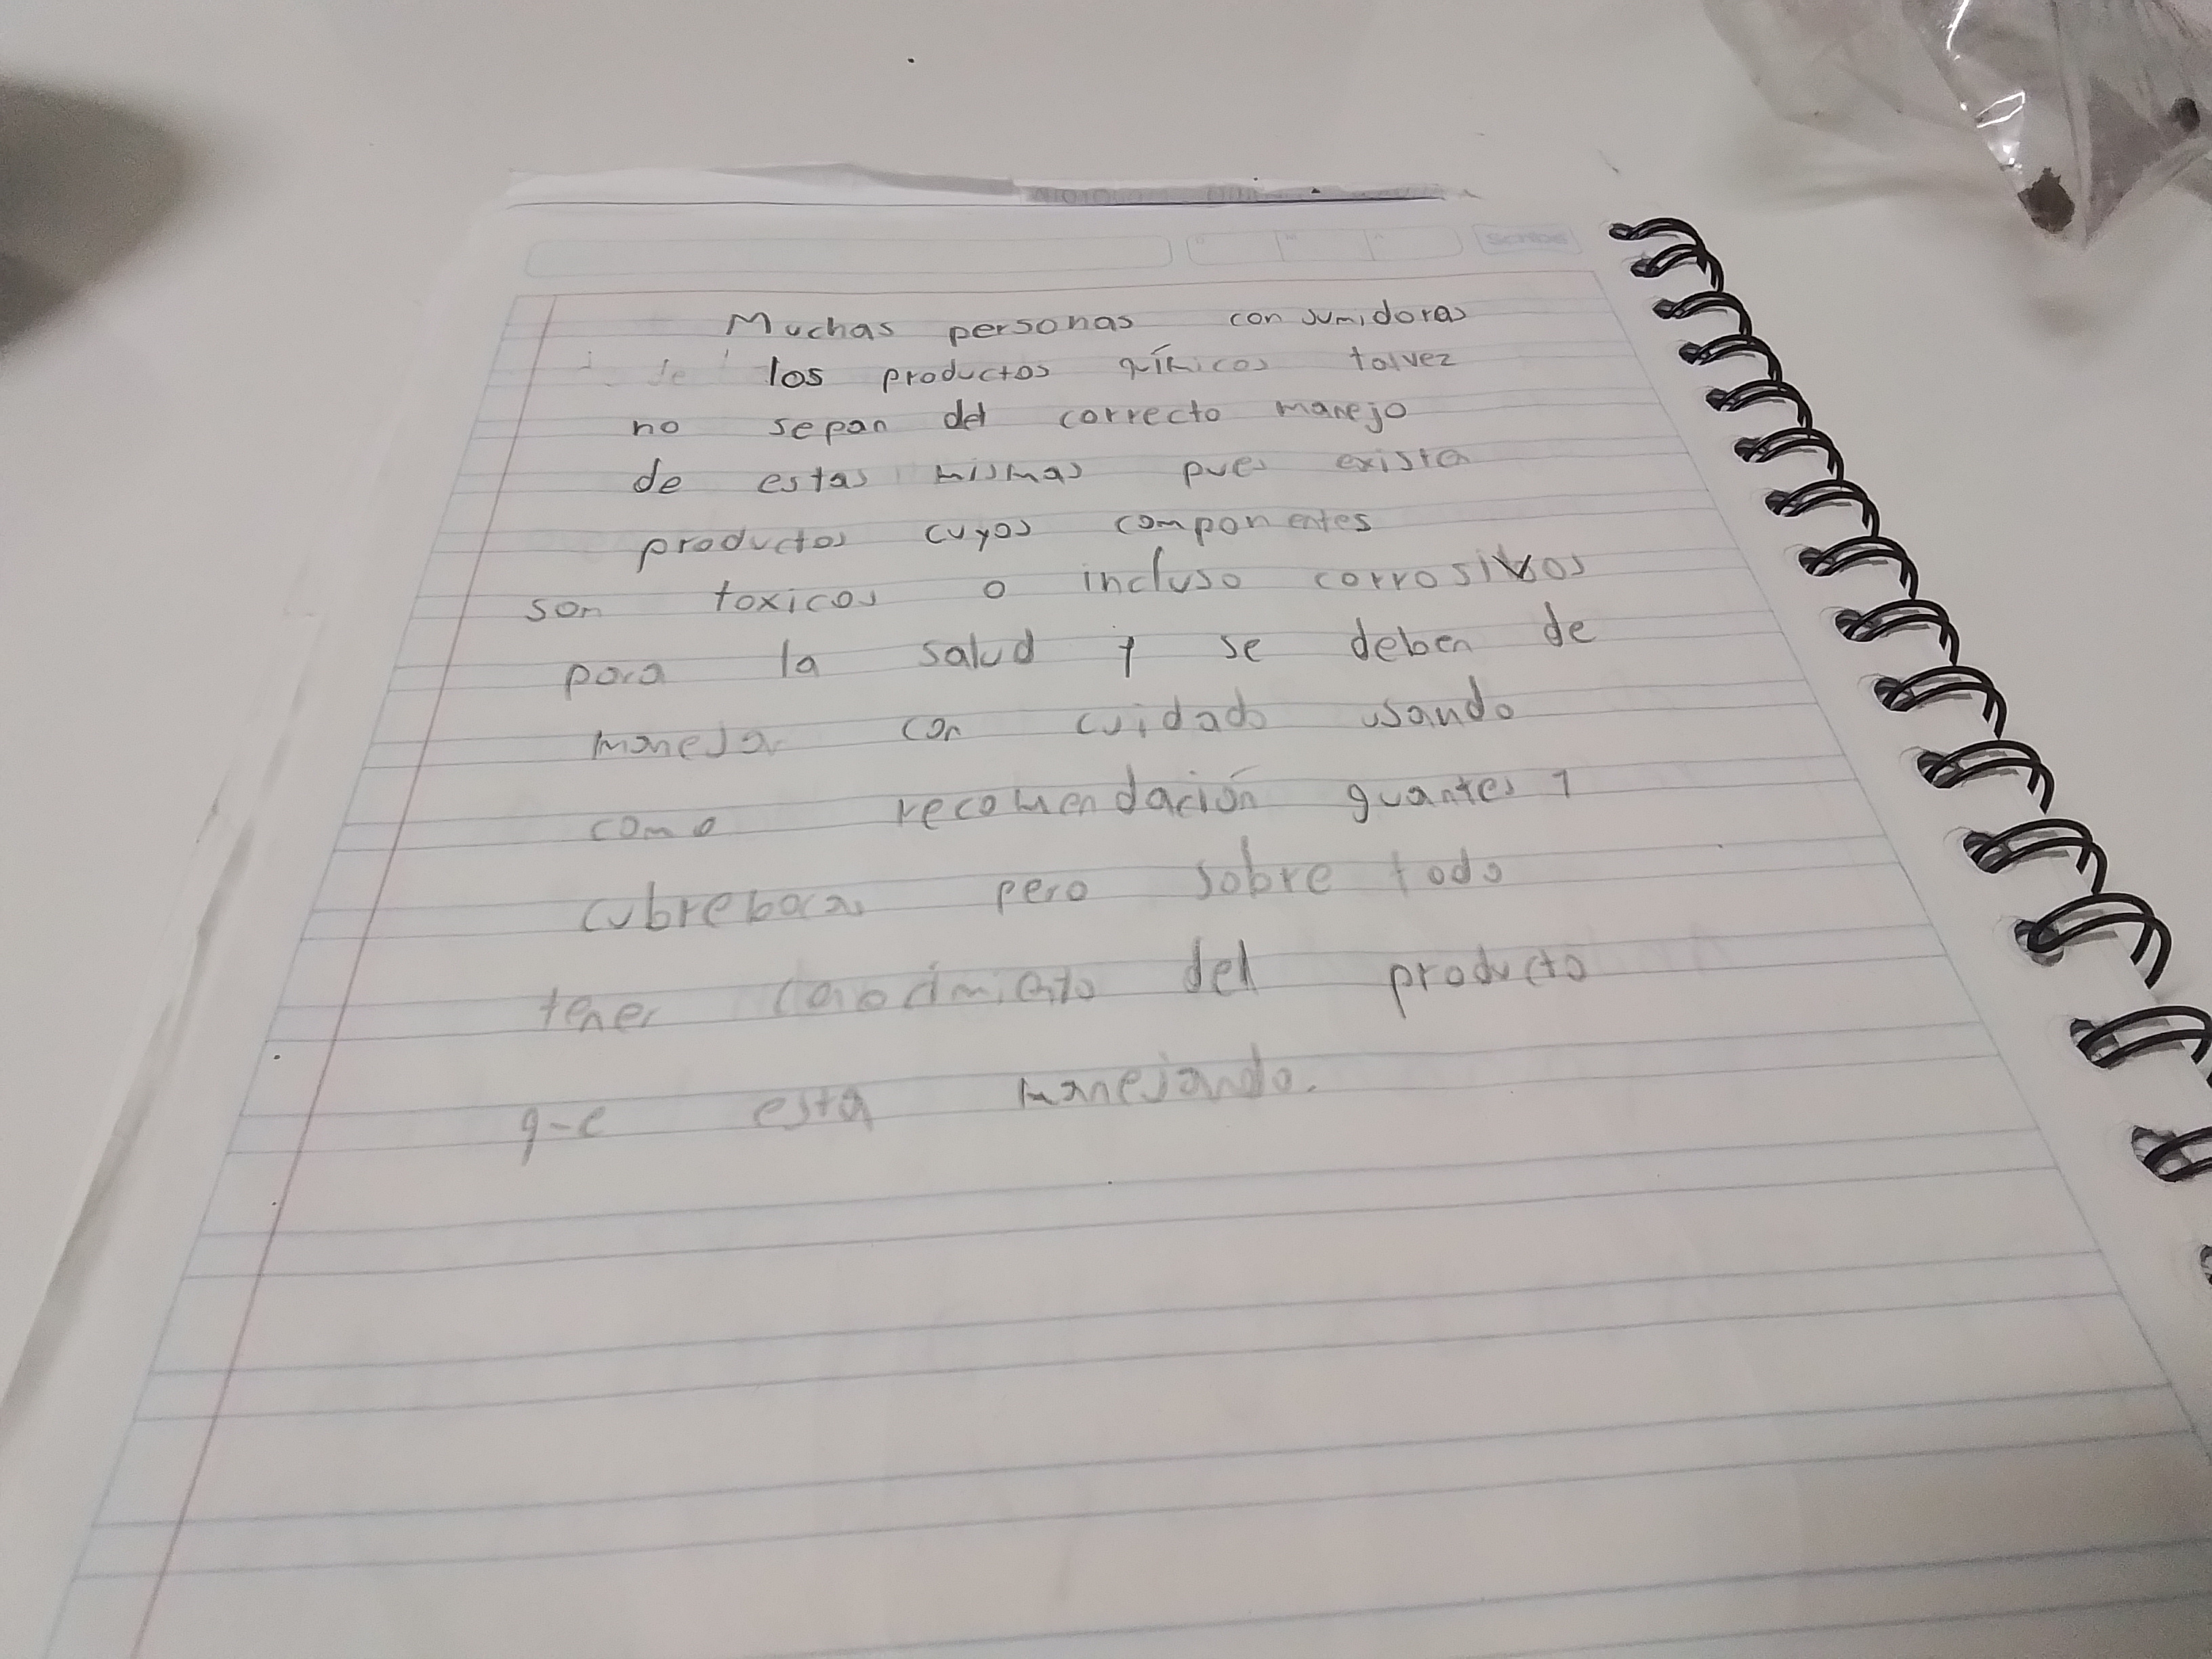 Muchas personas consumidoras
de los productos químicos talvez
no sepan del correcto manejo
de estas mismas pues exista
productos cuyos componentes
son toxicos o incluso corrosivos
para la salud y se deben de
manejar con cuidado usando
como recomendación guantes y
cubrebocas pero sobre todo
tener conocimiento del producto
que esta manejando.